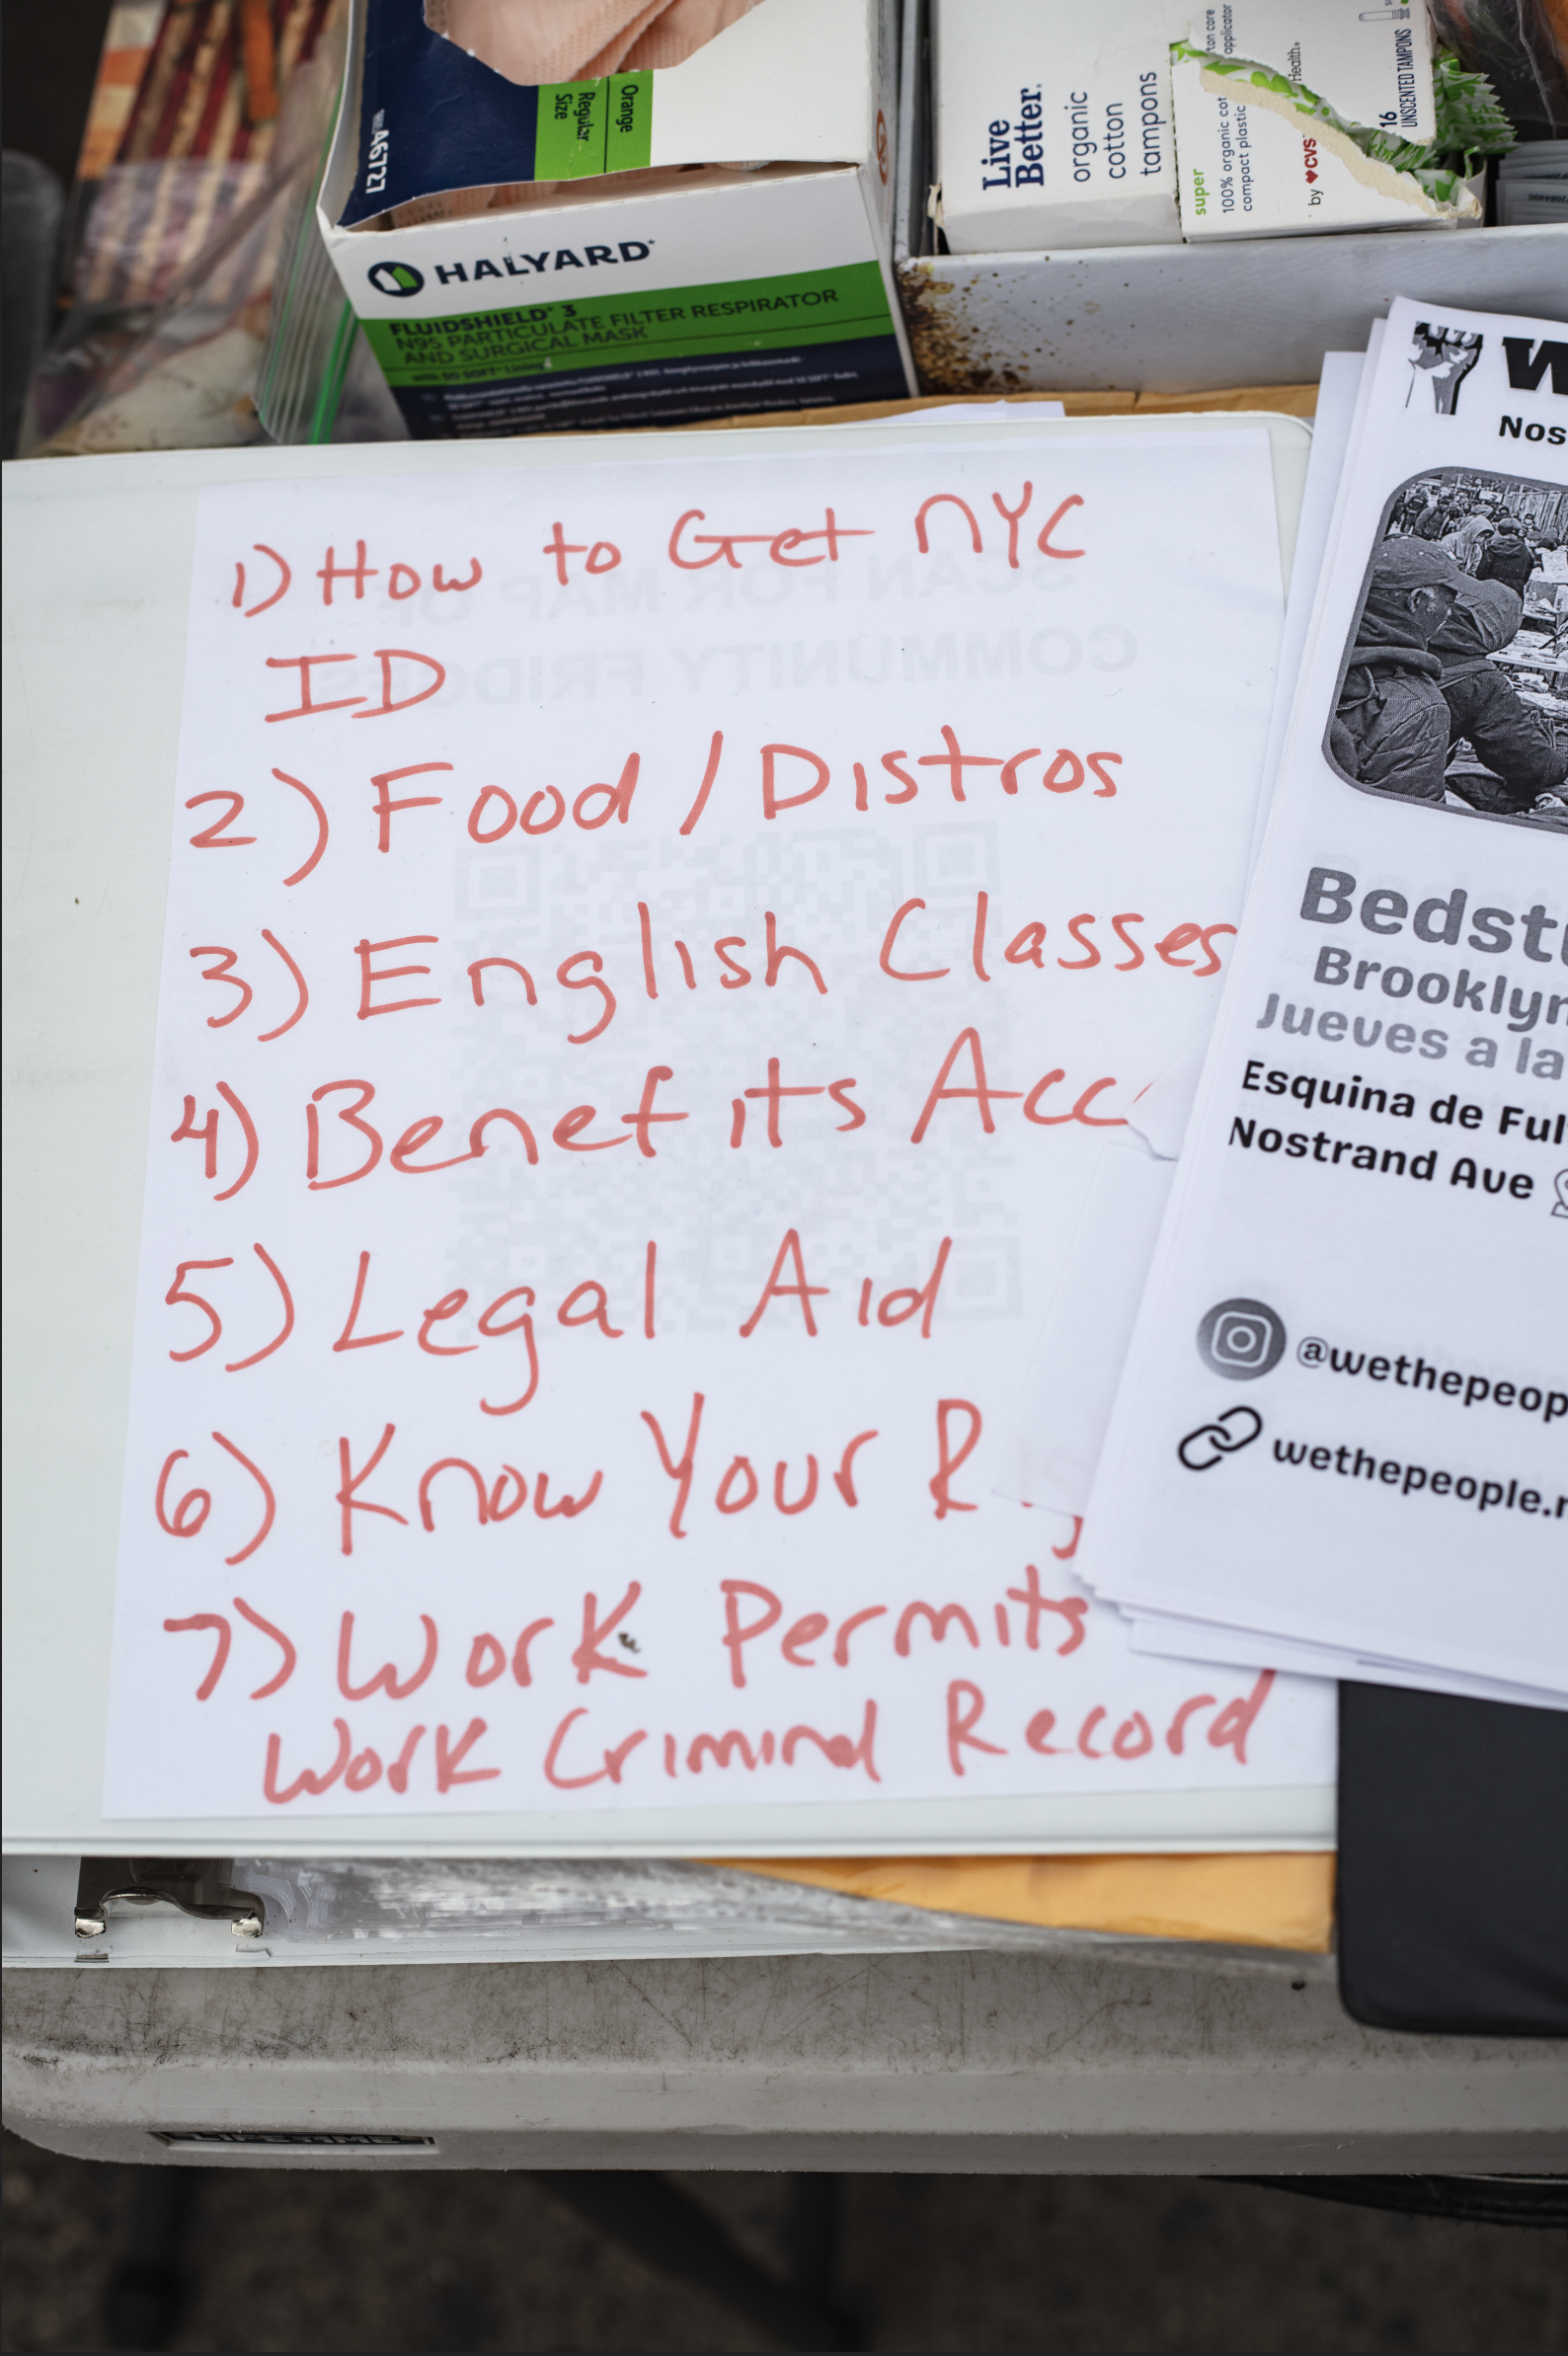 Orange
Regular
Size
46727
HALYARD*
FLUIDSHIELD* 3
N95 PARTICULATE FILTER RESPIRATOR
AND SURGICAL MASK
with SO SOFT* Lining
Live
Better.
organic
cotton
tampons
super
100% organic cot
compact plastic
ton core
applicator
by CVS Health.
16
UNSCENTED TAMPONS
SCAN FOR MAP OF
COMMUNITY FRIDGES
1) How to Get NYC
ID
2) Food / Distros
3) English Classes
4) Benefits Acc
5) Legal Aid
6) Know Your R
7) Work Permits
Work Criminal Record
W
Nos
Bedstu
Brooklyn
Jueves a la
Esquina de Ful
Nostrand Ave
@wethepeop
wethepeople.n
LIFETIME